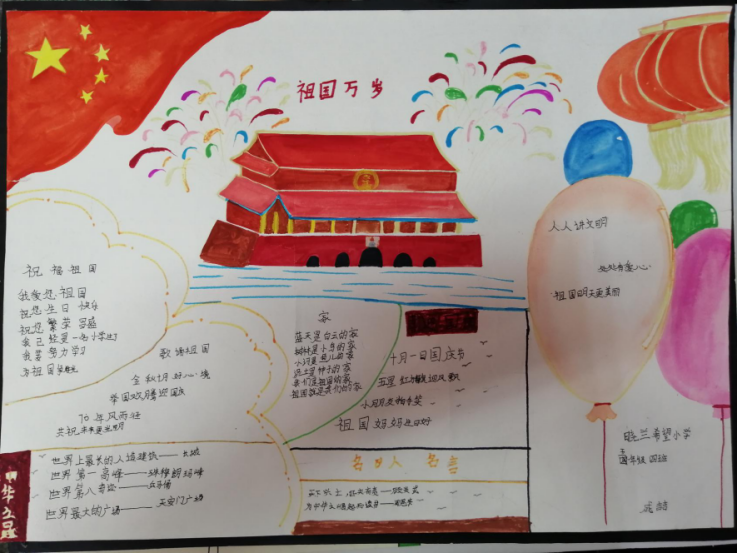 祖国万岁
祝福祖国
我爱您祖国
祝您生日快乐
祝您繁荣昌盛
我已经是一名小学生了
我要努力学习
为祖国
歌颂祖国
金秋十月好心境
举国欢腾迎国庆
70年风雨
共祝未来更
世界上最长的人造建筑——长城
世界第一高峰——珠穆朗玛峰
世界第八奇迹——兵马俑
世界最大的广场——天安门广场
家
蓝天是白云的家
树林是小鸟的家
小河是鱼儿的家
泥土是种子的家
我们是祖国的家
祖国就是我们的家
十月一日国庆节
五星红旗迎风飘
小朋友
祖国妈妈
名人名言
天下兴亡，匹夫有责——顾炎武
为中华之崛起而读书——周恩来
人人讲文明
处处有爱心
祖国明天更美丽
希望小学
年级